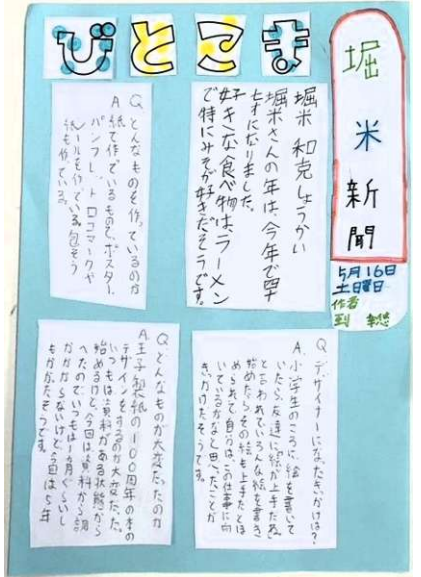 堀米新聞
5月16日
土曜日
作者
びとこま
堀米 和克しょうかい
堀米さんの年は、今年で四十
七才になりました。
好きな食べ物は、ラーメン
で特にみそが好きだそうです。
Q どんなものを作っているのか
A 紙で作っているもので、ポスター、
パンフレットロゴマークや
シールを作っている。包そう
紙も作っている。
Q デザイナーになったきっかけは?
A. 小学生のころに、絵を書いて
いたら、友達に「絵が上手だね」
と言われていろんな絵を書き
始めたらその絵も上手だとほ
められて、自分は、この仕事に向
いているかなと思ったことが
きっかけだそうです。
Q どんなものが大変だったのか
A 王子製紙の100周年の本の
デザインをするのが大変だった。
いつもは、資料がある状態から
始めるけど、今回は資料から調
べたのでいつもは1ヶ月ぐらいし
かかからないけど今回は5年
もかかったそうです。